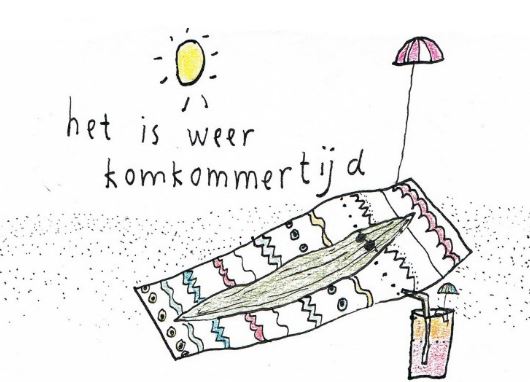 het is weer
komkommertijd